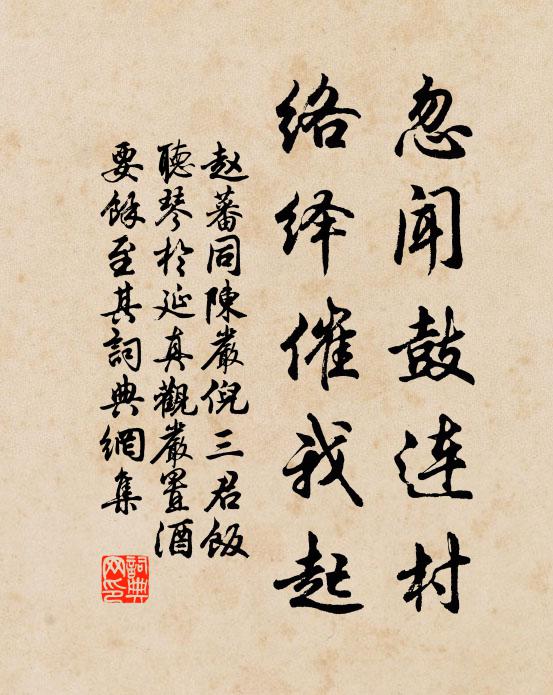 忽闻鼓连村
络绎催我起
赵蕃同陳嚴倪三君飯
聽琴於延真觀嚴置酒
要餘至其詞典網集
詞典网印